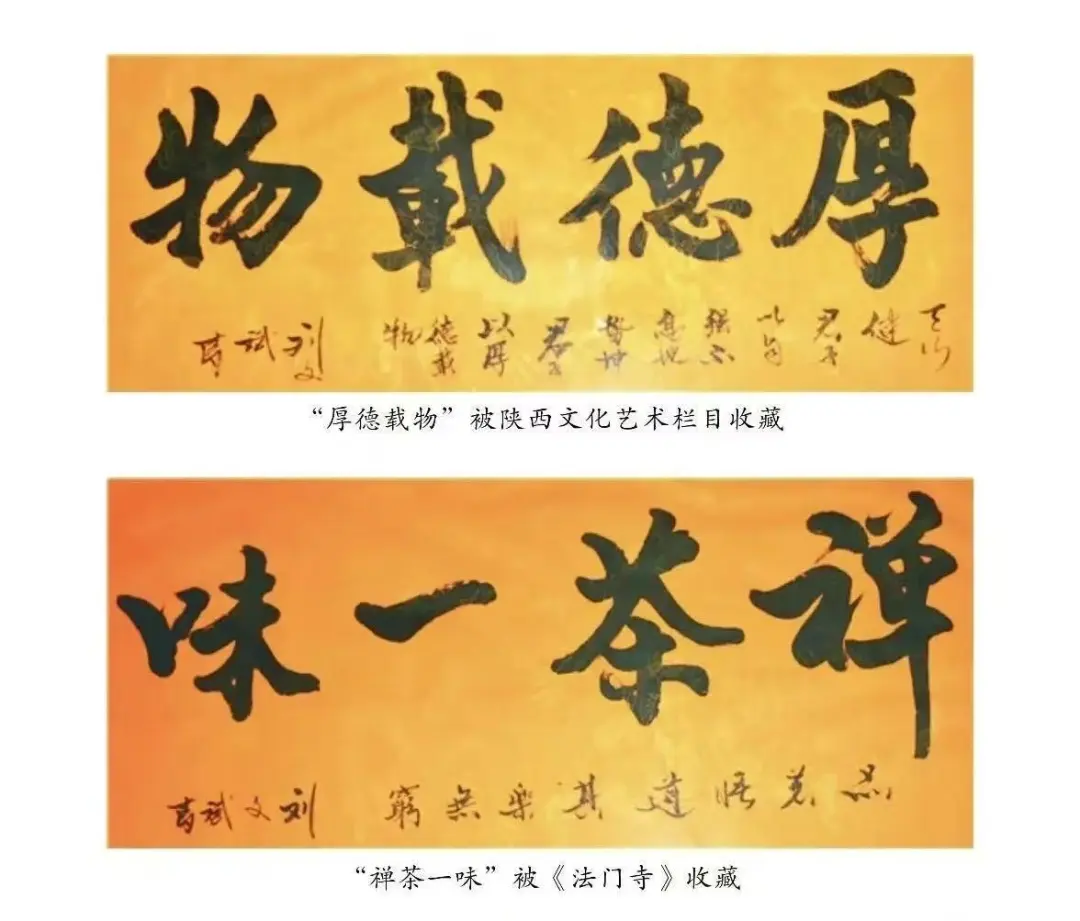 厚德載物
天行健君子以自强不息地势坤君子以厚德載物
刘文斌書
“厚德载物”被陕西文化艺术栏目收藏
禅茶一味
品茗悟道其樂無窮
刘文斌書
“禅茶一味”被《法门寺》收藏